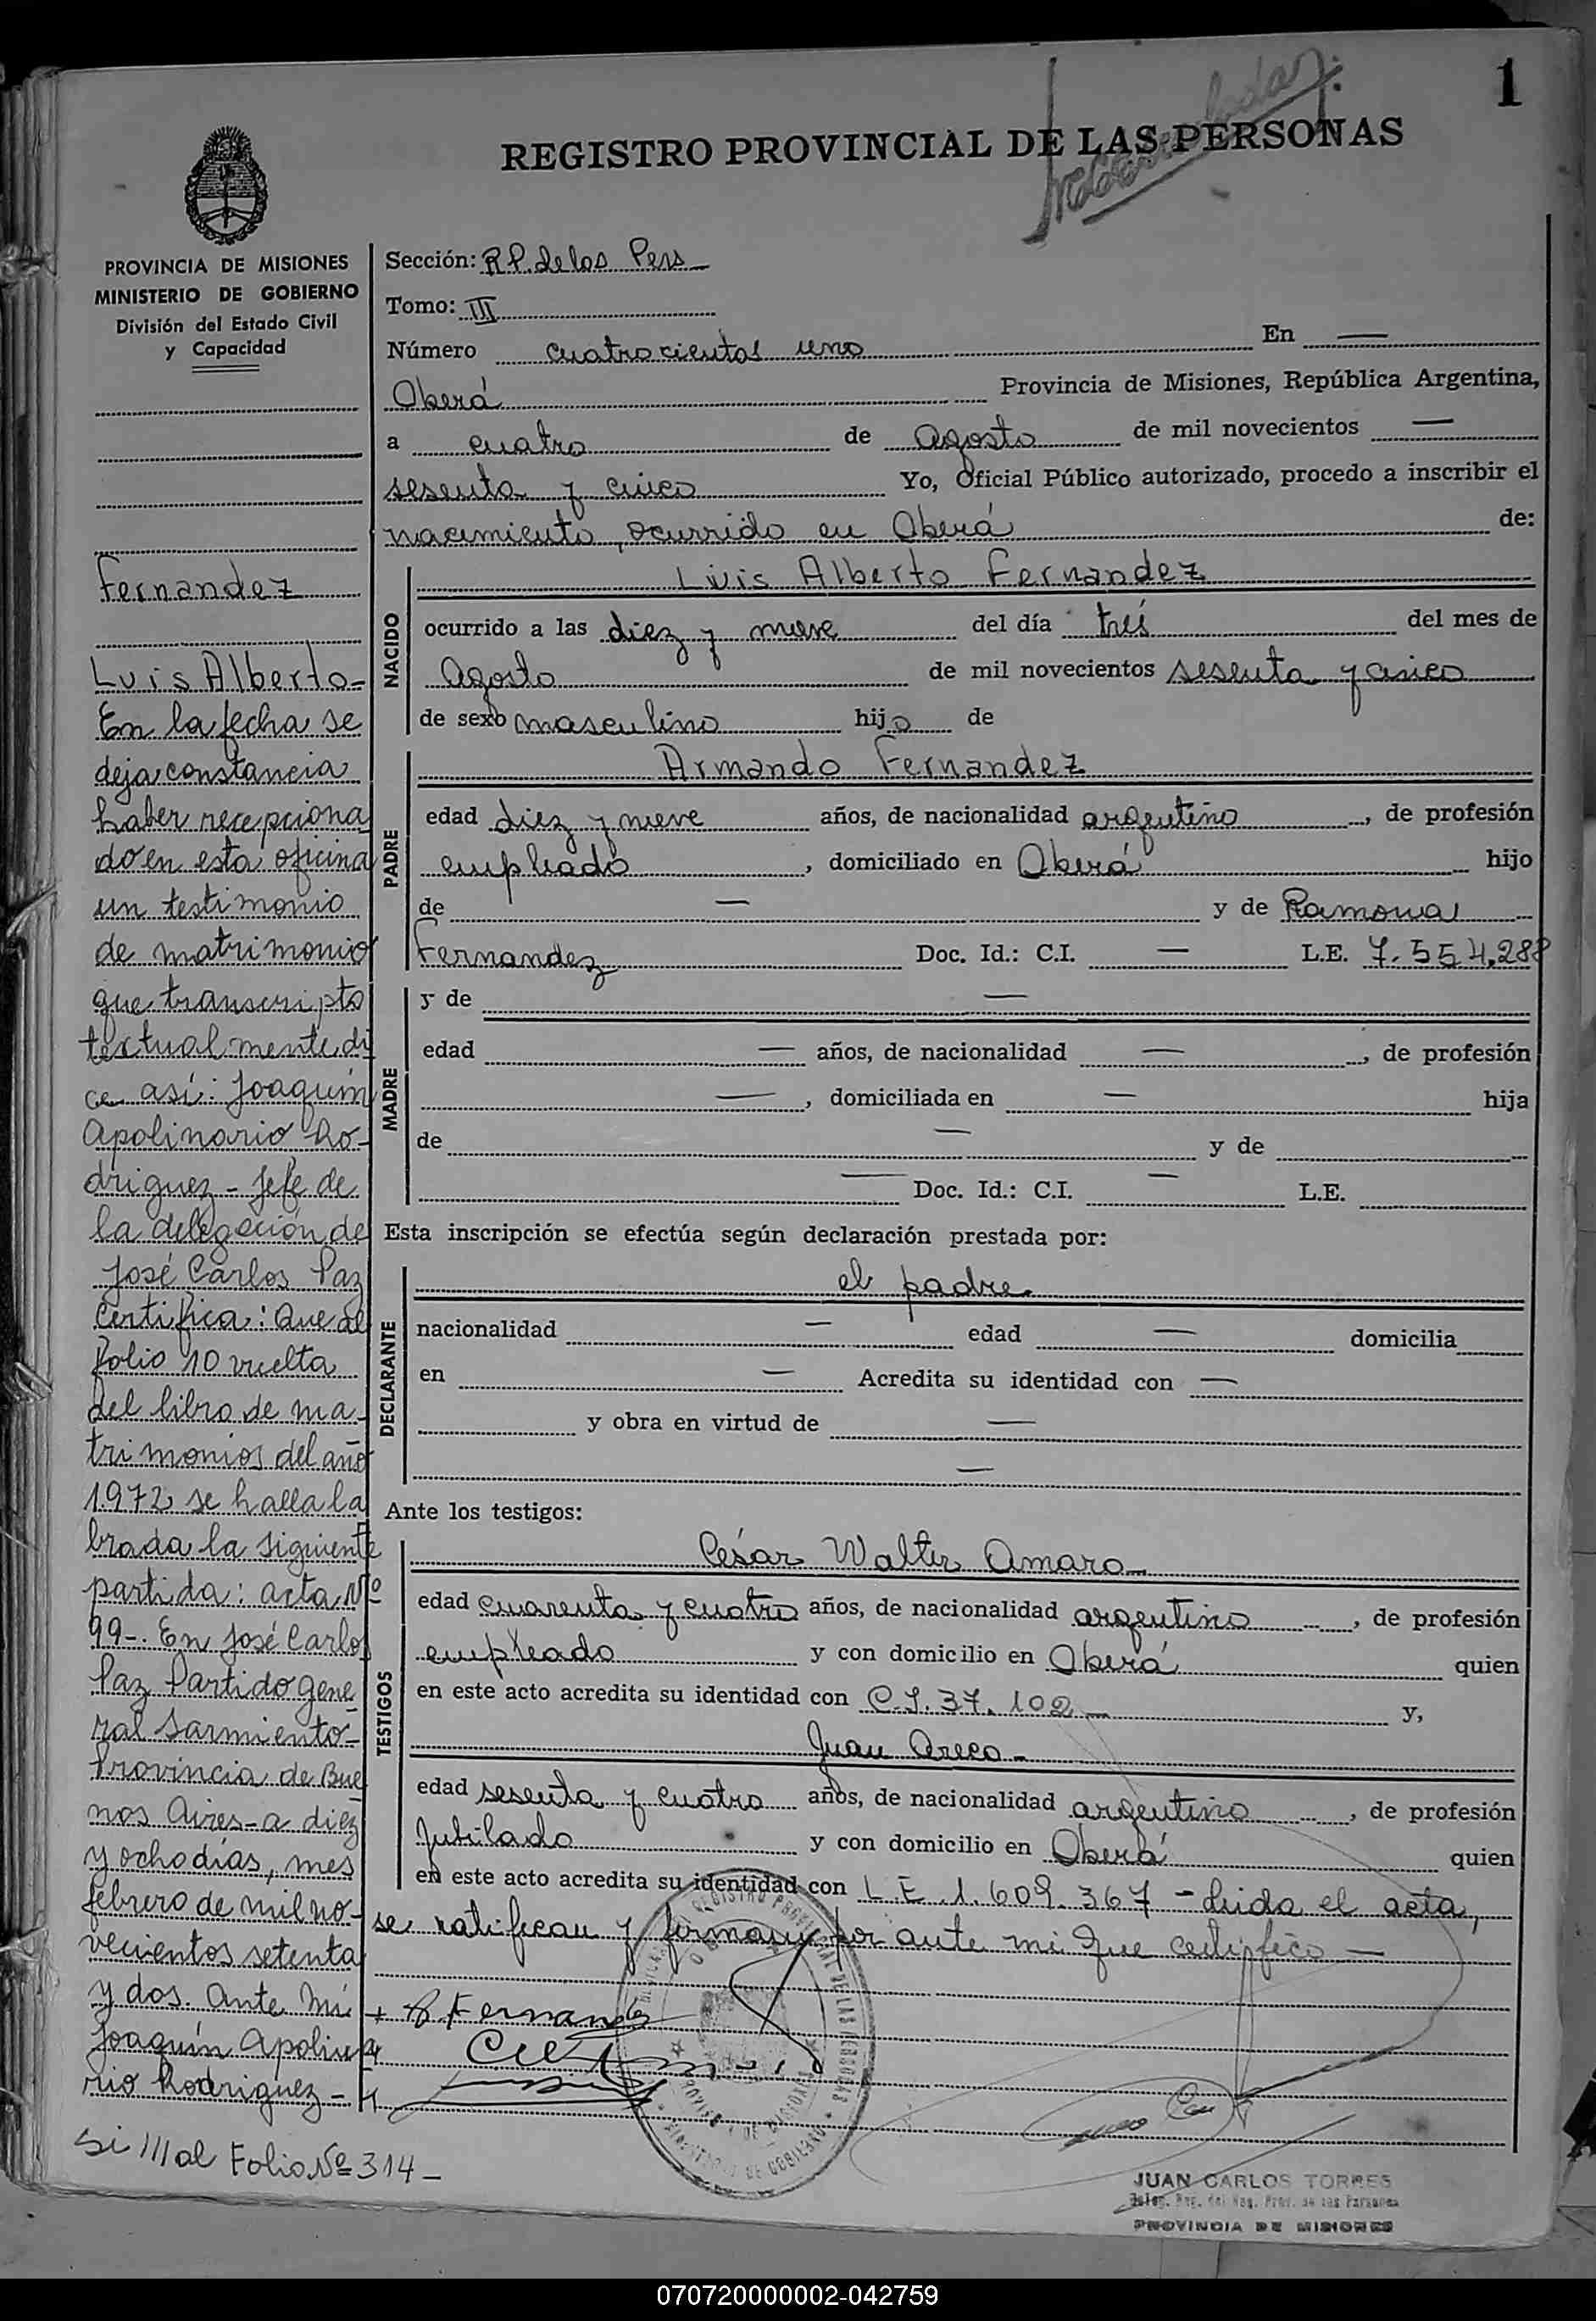 1
REGISTRO PROVINCIAL DE LAS PERSONAS
PROVINCIA DE MISIONES
MINISTERIO DE GOBIERNO
División del Estado Civil
y Capacidad
Fernandez
Luis Alberto-
En la fecha se
deja constancia
haber recepciona
do en esta oficina
un testimonio
de matrimonio
que transcripto
textualmente di
ce así: Joaquín
Apolinario Ro-
driguez - Jefe de
la delegación de
José Carlos Paz
Certifica: Que al
folio 10 vuelta
del libro de ma-
trimonios del año
1972 se halla la
brada la siguiente
partida: acta Nº
99-. En José Carlos
Paz Partido gene
ral Sarmiento-
Provincia de Bue
nos Aires - a diez
y ocho días, mes
febrero de mil no-
vecientos setenta
y dos. Ante mí
Joaquín Apolina
rio Rodriguez -
Si /// al Folio Nº 314 -
Sección: R.P. de las Pers
Tomo: III
Número cuatrocientos uno En —
Oberá Provincia de Misiones, República Argentina,
a cuatro de Agosto de mil novecientos —
sesenta y cinco Yo, Oficial Público autorizado, procedo a inscribir el
nacimiento, ocurrido en Oberá de:
NACIDO
Luis Alberto Fernandez
ocurrido a las diez y nueve del día trés del mes de
Agosto de mil novecientos sesenta y cinco
de sexo masculino hijo de
PADRE
Armando Fernandez
edad diez y nueve años, de nacionalidad argentino, de profesión
empleado, domiciliado en Oberá hijo
de — y de Ramona
Fernandez Doc. Id.: C.I. — L.E. 7.554.288
MADRE
y de —
edad — años, de nacionalidad —, de profesión
—, domiciliada en — hija
de — y de
— Doc. Id.: C.I. — L.E.
Esta inscripción se efectúa según declaración prestada por:
DECLARANTE
el padre
nacionalidad — edad — domicilia
en — Acredita su identidad con —
y obra en virtud de —
—
Ante los testigos:
TESTIGOS
César Walter Amaro
edad cuarenta y cuatro años, de nacionalidad argentino, de profesión
empleado y con domicilio en Oberá quien
en este acto acredita su identidad con C.I. 37.102 — y,
Juan Areco -
edad sesenta y cuatro años, de nacionalidad argentino, de profesión
Jubilado y con domicilio en Oberá quien
en este acto acredita su identidad con L E 1.609.367 - Leida el acta,
se ratifican y firman por ante mi que certifico —
JUAN CARLOS TORRES
PROVINCIA DE MISIONES
070720000002-042759